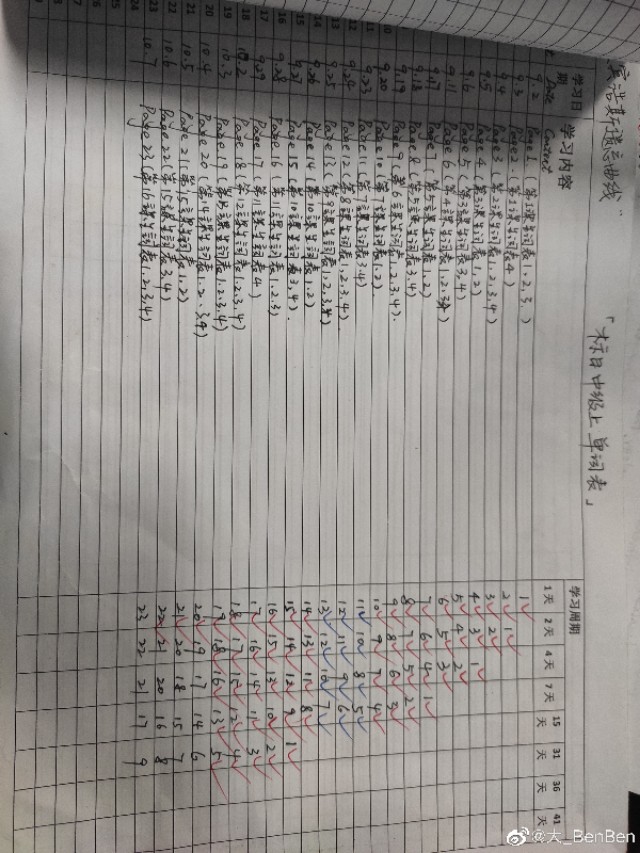 宾浩斯遗忘曲线”
「标日中级上单词表」
学习日期 学习内容 学习周期
Date Content 1天 2天 4天 7天 15天 31天 36天 41天
9.2 Page 1 (第1課生词表1,2,3,) 1✓
9.3 Page 2. (第1課生词表4) 2✓ 1✓
9.4 Page 3 (第2課生词表1,2,3,4) 3✓ 2✓
9.5 Page 4 (第3課生词表1,2) 4✓ 3✓ 1✓
9.6 Page 5 (第3課生词表3,4) 5✓ 4✓ 2✓
9.11 Page 6 (第4課生词表1,2,3,4) 6✓ 5✓ 3✓
9.17 Page 7 (第5課生词表1,2) 7✓ 6✓ 4✓ 1✓
9.18 Page 8 (第5課生词表3,4) 8✓ 7✓ 5✓ 2✓
9.19 Page 9 (第6課生词表1,2,3,4). 9✓ 8✓ 6✓ 3✓
10 9.20 Page 10 (第7課生词表1,2). 10✓ 9✓ 7✓ 4✓
11 9.23 Page 11 (第7課生词表3.4) 11✓ 10✓ 8✓ 5✓
12 9.24 Page 12 (第8課生词表1,2,3.4) 12✓ 11✓ 9✓ 6✓
13 9.25 Page 13 (第9課生词表1,2,3,4) 13✓ 12✓ 10✓ 7✓
14 9.26 Page 14 (第10課生词表1,2) 14✓ 13✓ 11✓ 8✓
15 9.27 Page 15 (第10課生词表3,4). 15✓ 14✓ 12✓ 9✓ 1✓
16 9.28 Page 16 (第11課生詞表1,2,3) 16✓ 15✓ 13✓ 10✓ 2✓
17 9.29 Page 17 (第11課生詞表4) 17✓ 16✓ 14✓ 11✓ 3✓
18 10.2 Page 18 (第12課生詞表1,2,3,4) 18✓ 17✓ 15✓ 12✓ 4✓
19 10.3 Page 19 (第13課生詞表1,2,3,4) 19✓ 18✓ 16✓ 13✓ 5✓
20 10.4 Page 20 (第14課生詞表1,2,3,4) 20✓ 19 17 14 6
21 10.5 Page 21 (第15課生詞表1,2) 21✓ 20 18 15 7
22 10.6 Page 22 (第15課生詞表3,4) 22✓ 21 20 16 8
23 10.7 Page 23 (第16課生詞表1,2,3,4) 23 22 21 17 9
24
@大_BenBen